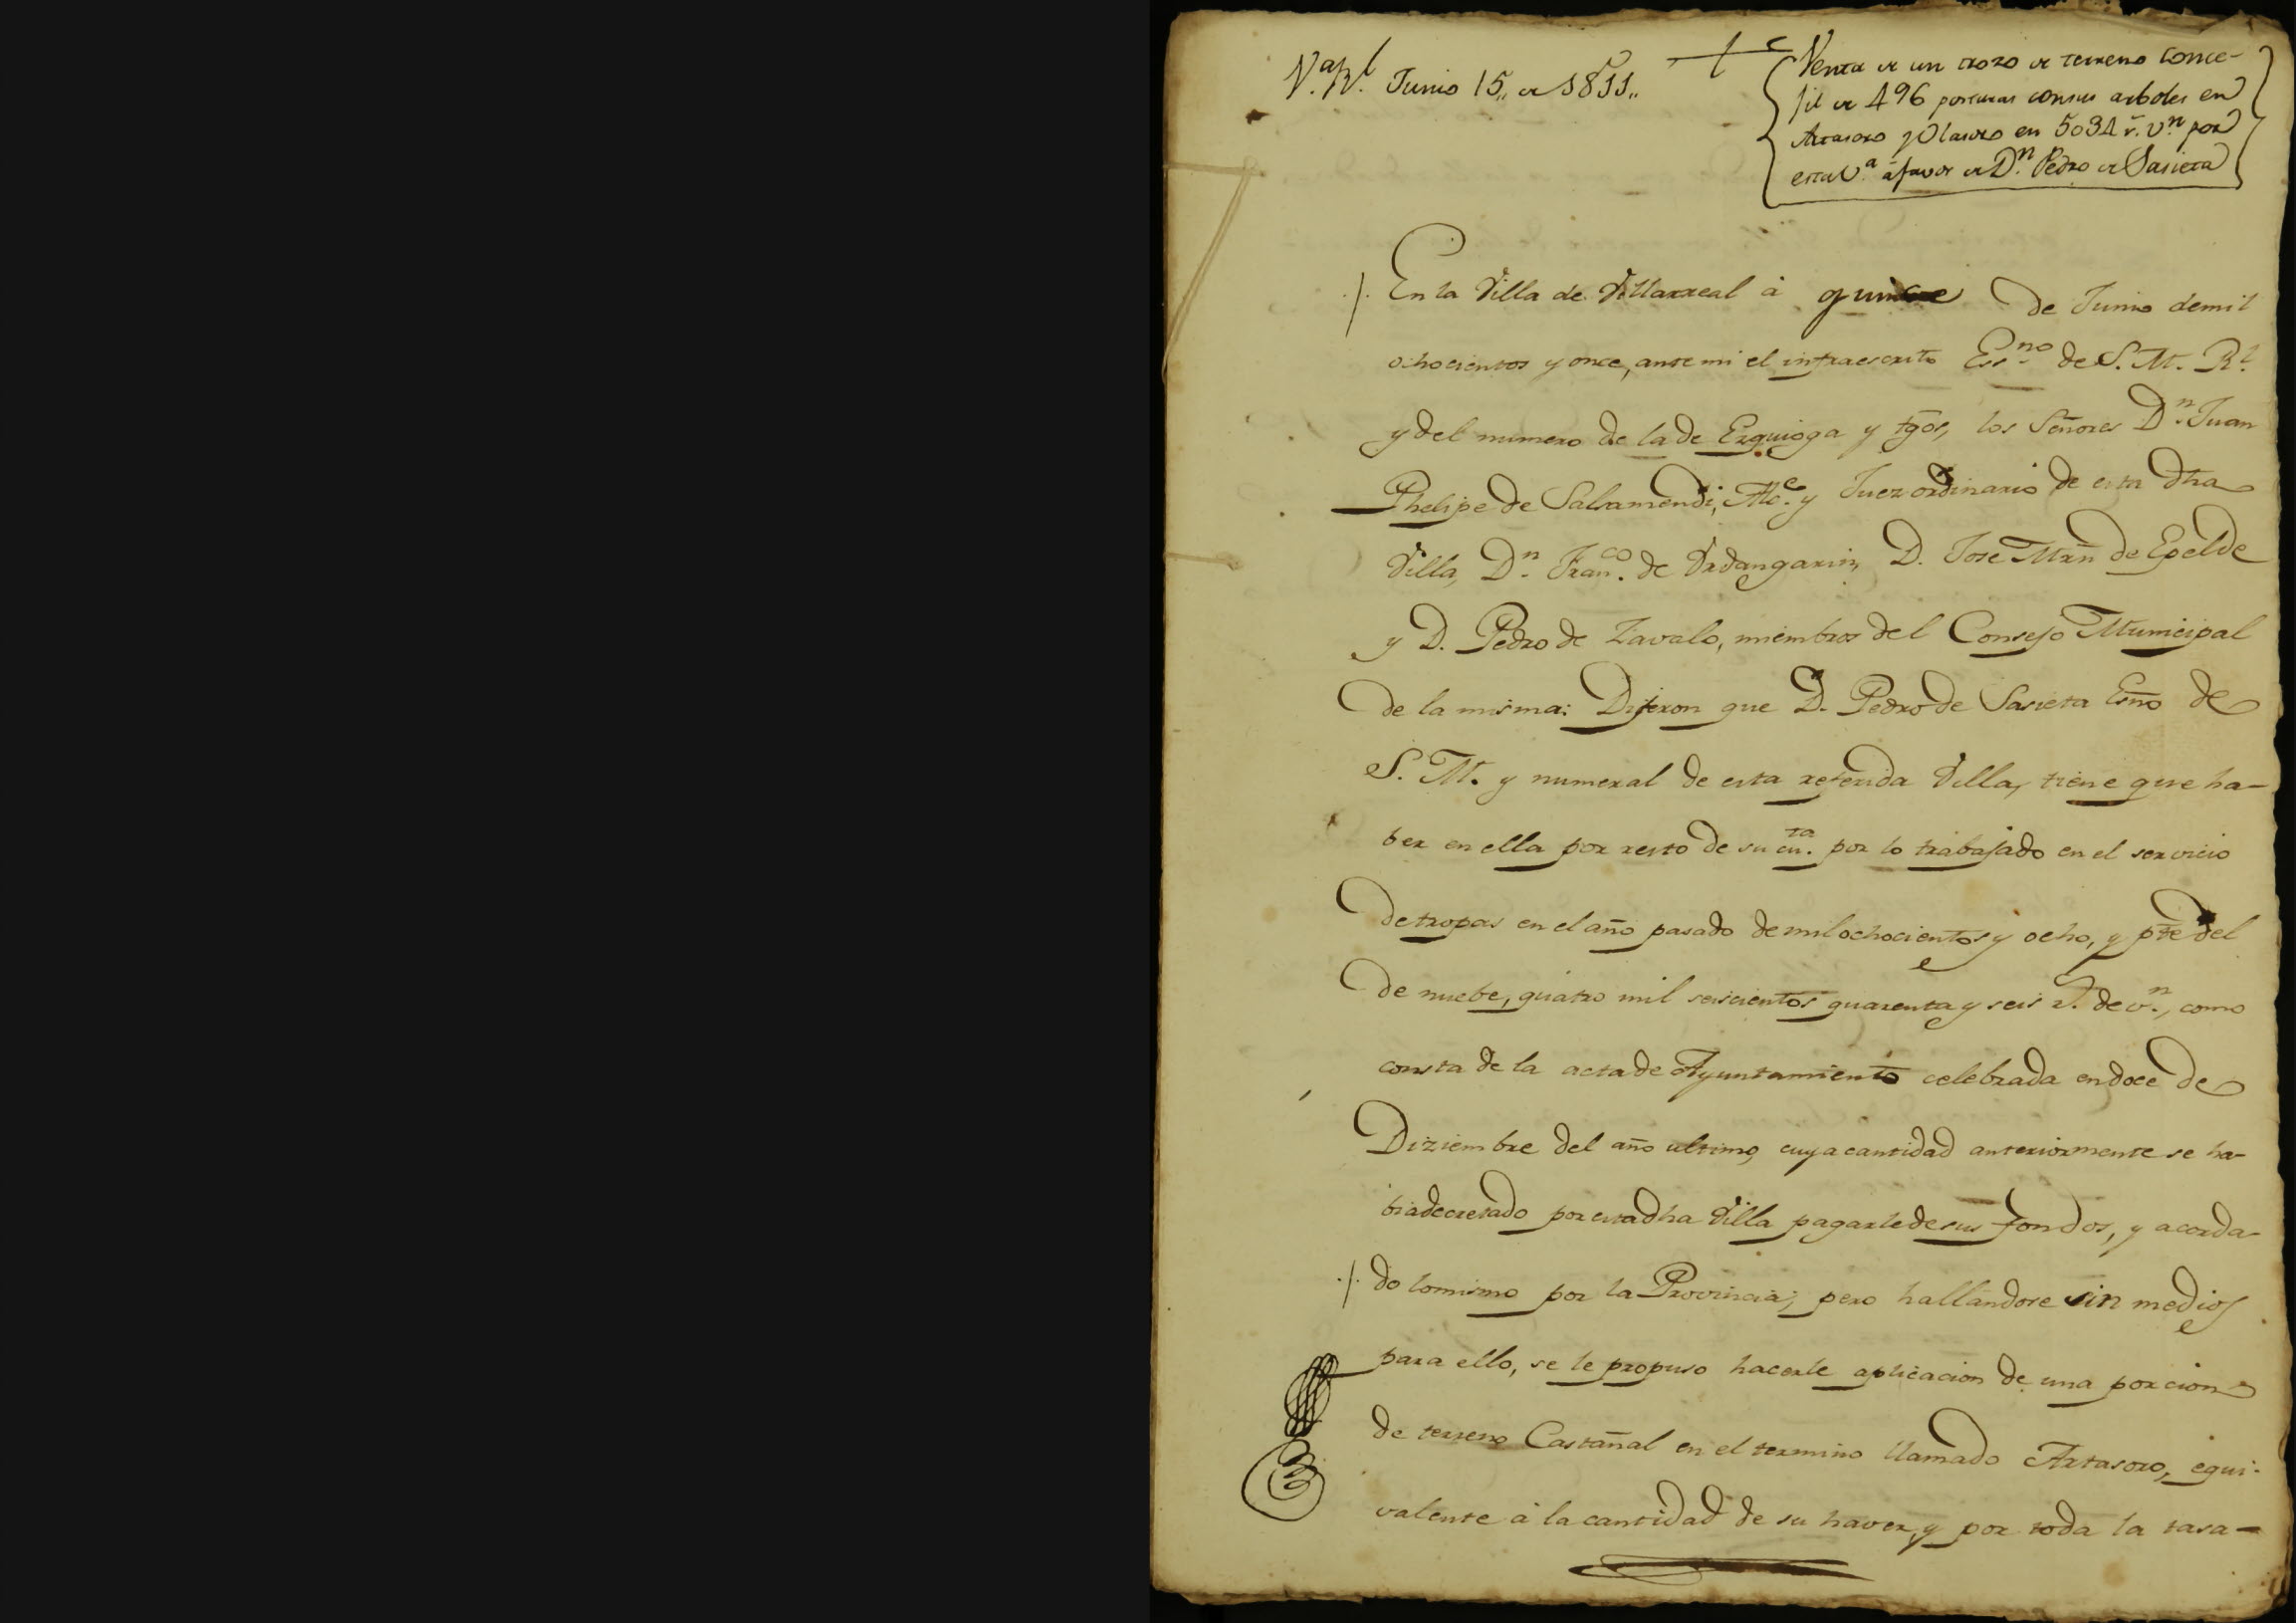 V.ª R.l Junio 15,, de 1811,,
Venta de un trozo de terreno conce-
jil de 496 posturas con sus arboles en
Artasoro y Olauro en 5034 r.s v.n por
esta V.ª á favor de D.n Pedro de Sasieta
En la Villa de Villarreal á quince de Junio de mil
ochocientos y once, ante mi el infraescrito Ess.no de S. M. R.l
y del numero de la de Ezquioga y tgõs, los Señores D.n Juan
Phelipe de Salsamendi, Alc.e y Juez ordinario de esta dha
Villa, D.n Fran.co de Vrdangarin, D. Jose Mrñ de Epelde
y D. Pedro de Zavalo, miembros del Consejo Municipal
de la misma: Dijeron que D. Pedro de Sasieta Esño de
S. M. y numeral de esta referida Villa, tiene que ha-
ber en ella por resto de su cu.ta por lo trabajado en el servicio
de tropas en el año pasado de mil ochocientos y ocho, y pte del
de nuebe, quatro mil seiscientos quarenta y seis r.s de v.n, como
consta de la acta de Ayuntamiento celebrada en doce de
Diziembre del año ultimo, cuya cantidad anteriormente se ha-
bia decretado por esta dha Villa pagarle de sus fondos, y acorda-
do lo mismo por la Provincia; pero hallandose sin medios
para ello, se le propuso hacerle aplicacion de una porcion
de terreno Castañal en el termino llamado Artasoro, equi-
valente á la cantidad de su haver, y por toda la tasa-